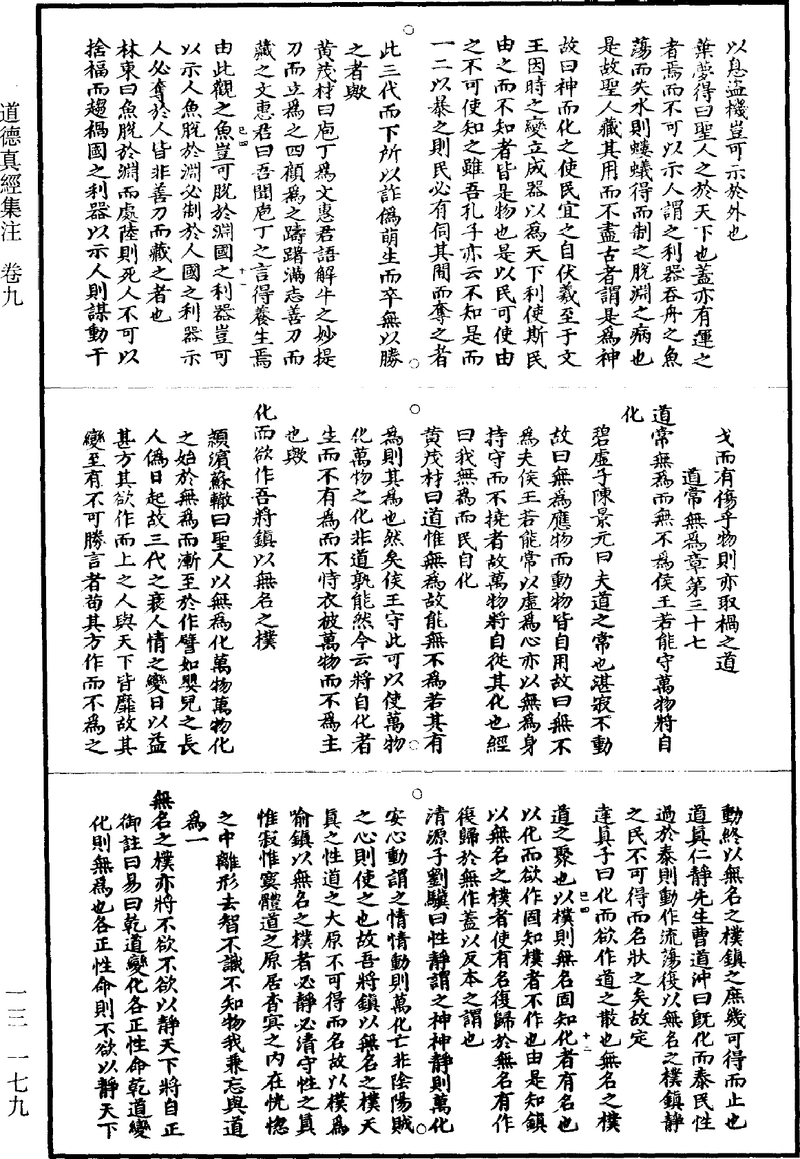 以息盜機豈可示於外也
葉夢得曰聖人之於天下也蓋亦有運之
者焉而不可以示人謂之利器吞舟之魚
蕩而失水則螻蟻得而制之脫淵之病也
是故聖人藏其用而不盡古者謂是為神
故曰神而化之使民宜之自伏羲至于文
王因時之變立成器以為天下利使斯民
由之而不知者皆是物也是以民可使由
之不可使知之雖吾孔子亦云不知是而
一二以暴之則民必有伺其間而奪之者
此三代而下所以詐偽萌生而卒無以勝
之者歟
黃茂材曰庖丁為文惠君語解牛之妙提
刀而立為之四顧為之躊躇滿志善刀而
藏之文惠君曰吾聞庖丁之言得養生焉
由此觀之魚豈可脫於淵國之利器豈可
以示人魚脫於淵必制於人國之利器示
人必奪於人皆非善刀而藏之者也
林東曰魚脫於淵而處陸則死人不可以
捨福而趨禍國之利器以示人則謀動干
戈而有傷乎物則亦取禍之道
道常無為章第三十七
道常無為而無不為侯王若能守萬物將自
化
碧虛子陳景元曰夫道之常也湛寂不動
故曰無為應物而動物皆自用故曰無不
為夫侯王若能常以虛為心亦以無為身
持守而不撓者故萬物將自從其化也經
曰我無為而民自化
黃茂材曰道惟無為故能無不為若其有
為則其為也然矣侯王守此可以使萬物
化萬物之化非道孰能然今云將自化者
生而不有為而不恃衣被萬物而不為主
也歟
化而欲作吾將鎮以無名之樸
頴濱蘇轍曰聖人以無為化萬物萬物化
之始於無為而漸至於作譬如嬰兒之長
人偽日起故三代之衰人情之變日以益
甚方其欲作而上之人與天下皆靡故其
變至有不可勝言者苟其方作而不為之
動終以無名之樸鎮之庶幾可得而止也
道真仁靜先生曹道沖曰既化而泰民性
過於泰則動作流蕩復以無名之樸鎮靜
之民不可得而名狀之矣故定
達真子曰化而欲作道之散也無名之樸
道之聚也以樸則無名固知化者有名也
以化而欲作固知樸者不作也由是知鎮
以無名之樸者使有名復歸於無名有作
復歸於無作蓋以反本之謂也
清源子劉驥曰性靜謂之神神靜則萬化
安心動謂之情情動則萬化亡非陰陽賊
之心則使之也故吾將鎮以無名之樸天
真之性道之大原不可得而名故以樸為
喻鎮以無名之樸者必靜必清守性之真
惟寂惟寞體道之原居杳冥之內在恍惚
之中離形去智不識不知物我兼忘與道
為一
無名之樸亦將不欲不欲以靜天下將自正
御註曰易曰乾道變化各正性命乾道變
化則無為也各正性命則不欲以靜天下
道德真經集注　卷九
一三　一七九
已四　十一
已四　十二